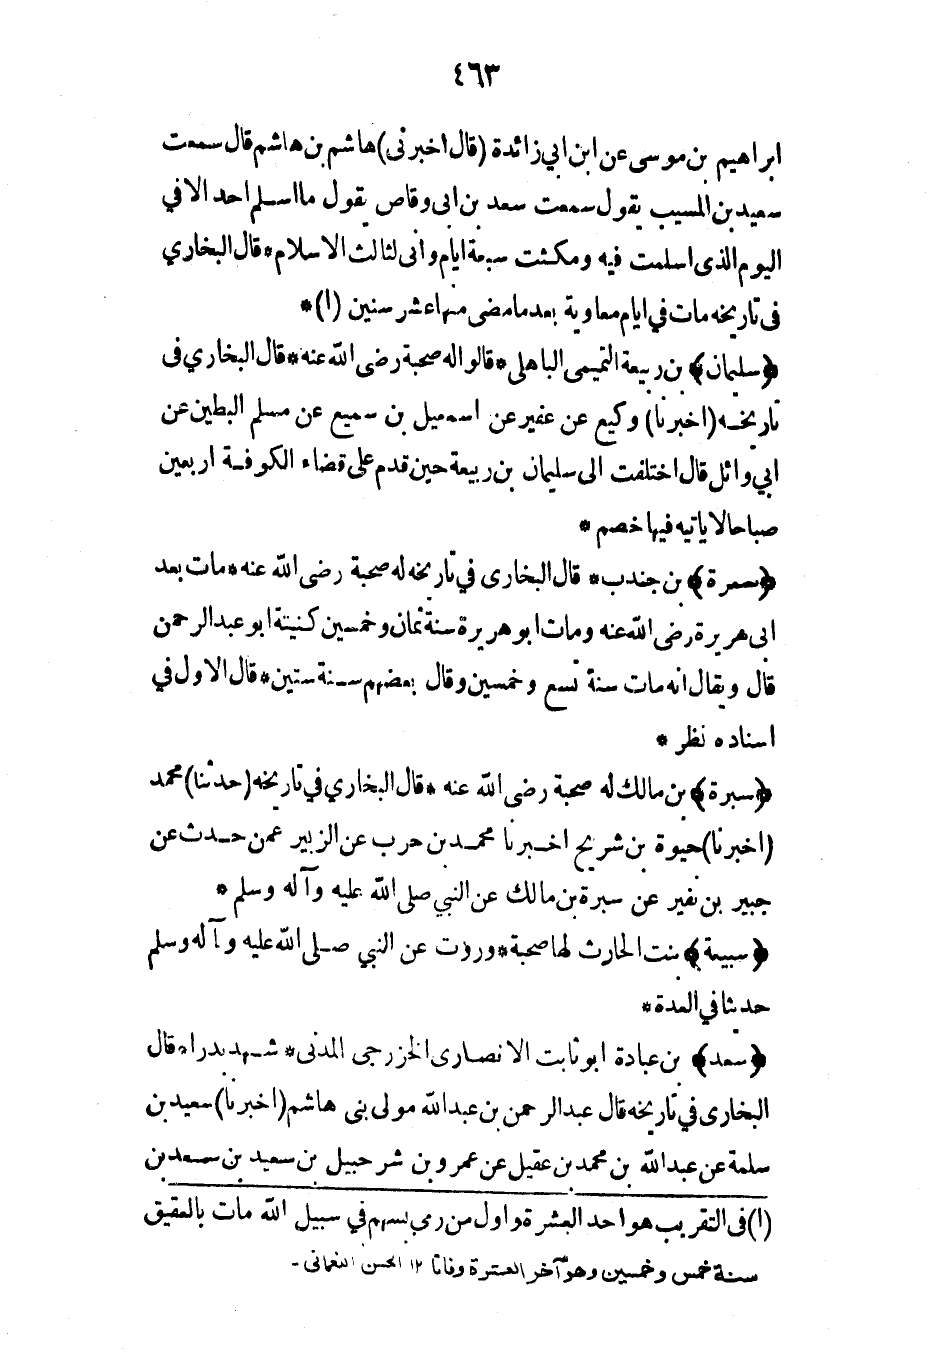 ٤٦٣
ابراهيم بن موسى عن ابن ابي زائدة (قال اخبرنى) هاشم بن هاشم قال سمعت
سعيد بن المسيب يقول سمعت سعد بن ابى وقاص يقول ما اسلم احد الا في
اليوم الذى اسلمت فيه ومكثت سبعة ايام وانى لثالث الاسلام * قال البخاري
فى تاريخه مات في ايام معاوية بعد ما مضى منها عشر سنين (١) *
﴿سليمان﴾ بن ربيعة التميمى الباهلى * قالوا له صحبة رضى الله عنه * قال البخاري فى
تاريخه (اخبرنا) وكيع عن عفير عن اسمعيل بن سميع عن مسلم البطين عن
ابي وائل قال اختلفت الى سليمان بن ربيعة حين قدم على قضاء الكوفة اربعين
صباحا لا ياتيه فيها خصم *
﴿سمرة﴾ بن جندب * قال البخارى في تاريخه له صحبة رضى الله عنه * مات بعد
ابى هريرة رضى الله عنه ومات ابو هريرة سنة ثمان وخمسين كنيته ابو عبد الرحمن
قال ويقال انه مات سنة تسع وخمسين وقال بعضهم سنة ستين * قال الاول في
اسناده نظر *
﴿سبرة﴾ بن مالك له صحبة رضى الله عنه * قال البخاري في تاريخه (حدثنا) محمد
(اخبرنا) حيوة بن شريح اخبرنا محمد بن حرب عن الزبير عمن حدث عن
جبير بن نفير عن سبرة بن مالك عن النبي صلى الله عليه وآله وسلم *
﴿سبيعة﴾ بنت الحارث لها صحبة * وروت عن النبي صلى الله عليه وآله وسلم
حديثا في العدة *
﴿سعد﴾ بن عبادة ابو ثابت الانصارى الخزرجى المدنى * شهد بدرا * قال
البخارى في تاريخه قال عبد الرحمن بن عبد الله مولى بنى هاشم (اخبرنا) سعيد بن
سلمة عن عبد الله بن محمد بن عقيل عن عمرو بن شرحبيل بن سعيد بن سعد بن
(١) فى التقريب هو احد العشرة واول من رمى بسهم في سبيل الله مات بالعقيق
سنة خمس وخمسين وهو آخر العشرة وفاتا ١٢ الحسن النعمانى -